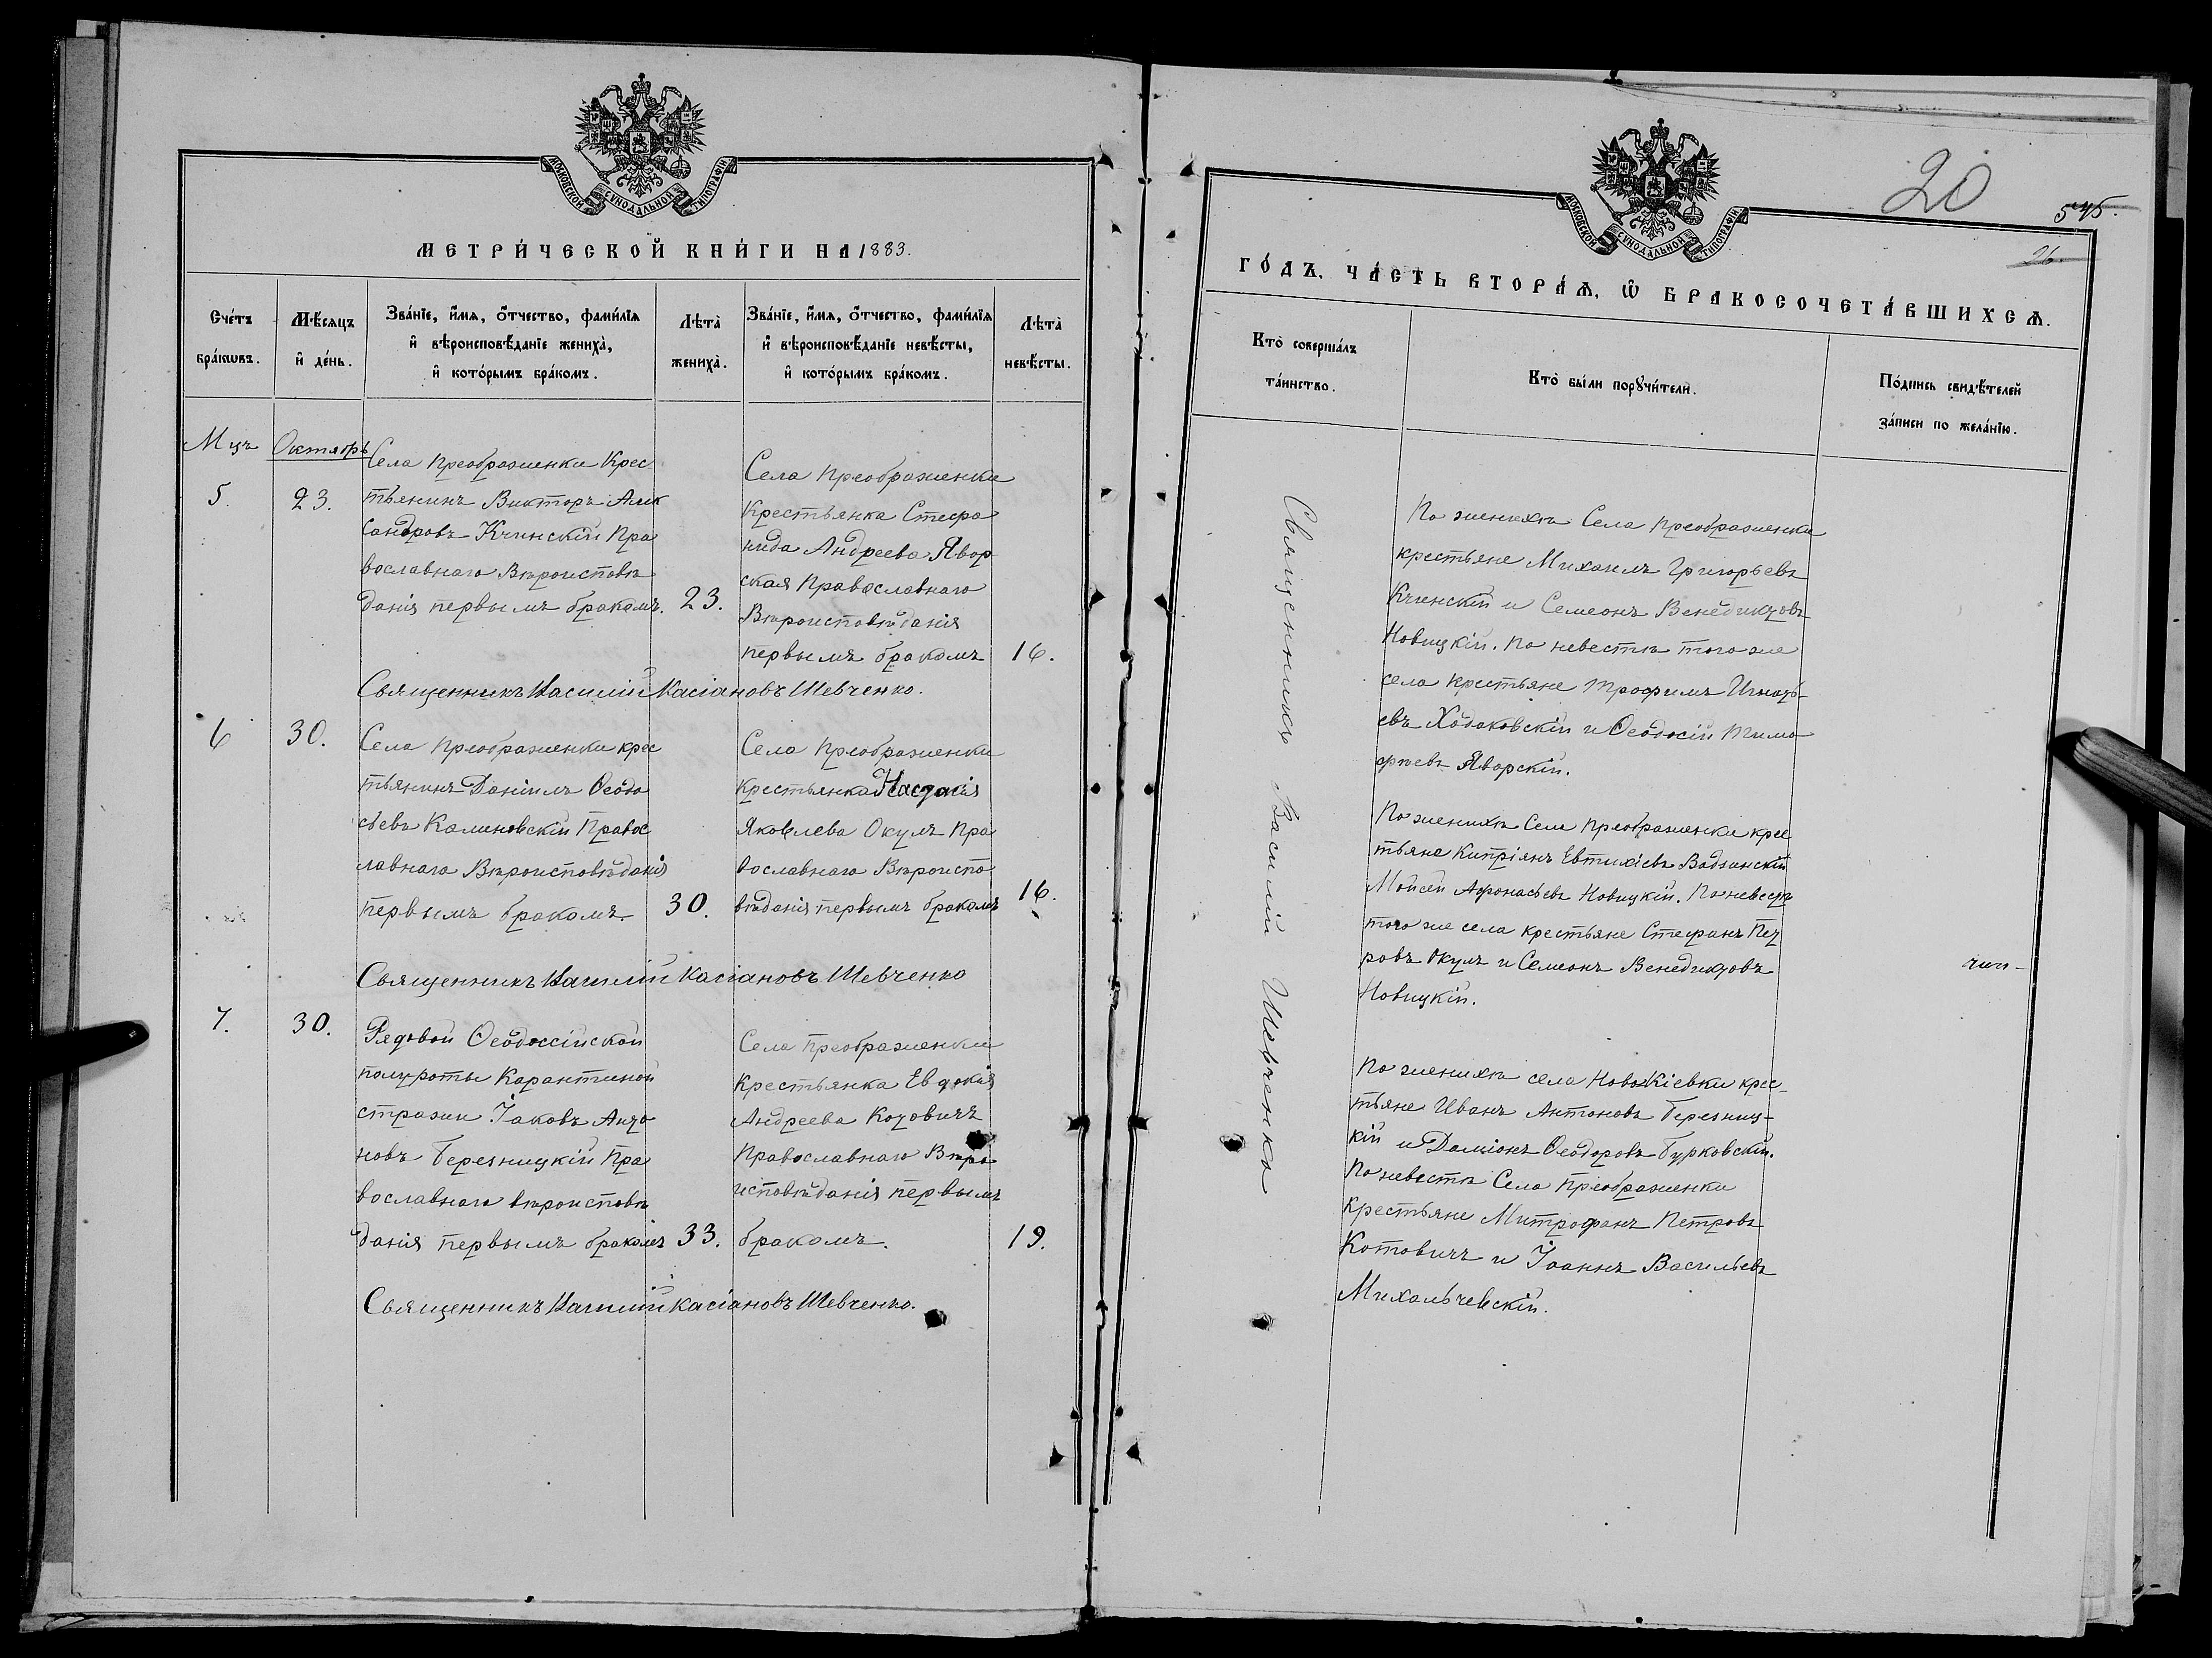 МОСКОВСКОЙ СѴНОДАЛЬНОЙ ТИПОГРАФІИ
МЕТРИ́ЧЕСКОЙ КНИ́ГИ НА 1883.
Сче́тъ бра́кωвъ.
Мѣ́сяцъ и҆ де́нь.
Зва́нїе, и҆́мя, ѻ҆́тчество, фами́лїя
и҆ вѣроисповѣ́данїе жениха̀,
и҆ кото́рымъ бра́комъ.
Лѣта̀ жениха̀.
Зва́нїе, и҆́мя, ѻ҆́тчество, фами́лїя
и҆ вѣроисповѣ́данїе невѣ́сты,
и҆ кото́рымъ бра́комъ.
Лѣта̀ невѣ́сты.
Мцъ Октябрь
5.
23.
Села Преображенки Крес
тьянинъ Викторъ Алек
сандровъ Кчинскій Пра
вославнаго Вѣроисповѣ
данія первымъ бракомъ.
23.
Села Преображенки
Крестьянка Стефа
нида Андреева Явор
ская Православнаго
Вѣроисповѣданія
первымъ бракомъ
16.
Священникъ Василій Касіановъ Шевченко.
6
30.
Села Преображенки крес
тьянинъ Даніилъ Ѳеодо
сьевъ Калиновскій Правос
лавнаго Вѣроисповѣданія
первымъ бракомъ.
30.
Села Преображенки
крестьянка Настасія
Яковлева Окулъ Пра
вославнаго Вѣроиспо
вѣданія первымъ бракомъ
16.
Священникъ Василій Касіановъ Шевченко
7.
30.
Рядовой Ѳеодосійской
полуроты Карантиной
стражи Іаковъ Анто
новъ Березницкій Пра
вославнаго вѣроисповѣ
данія первымъ бракомъ
33.
Села Преображенки
крестьянка Евдокія
Андреева Котовичъ
Православнаго Вѣро
исповѣданія первымъ
бракомъ.
19.
Священникъ Василій Касіановъ Шевченко.
МОСКОВСКОЙ СѴНОДАЛЬНОЙ ТИПОГРАФІИ
20
26.
ГО́ДЪ, ЧА́СТЬ ВТОРА́Ѧ, Ѽ БРАКОСОЧЕТА́ВШИХСѦ.
Кто̀ соверша́лъ
та́инство.
Кто̀ бы́ли порꙋчи́тели.
По́дпись свидѣ́телей
за́писи по жела́нїю.
Священникъ Василій Шевченко
По женихѣ Села Преображенки
крестьяне Михаилъ Григорьевъ
Кчинскій и Семеонъ Венедиктовъ
Новицкій. По невестѣ того же
села крестьяне Трофимъ Игнать-
евъ Ходаковскій и Ѳеодосій Тимо
фѣевъ Яворскій.
По женихѣ Села Преображенки крес
тьяне Кипріянъ Евтихіевъ Вадзинскій
Мойсей Афонасьевъ Новицкій. По невестѣ
того же села крестьяне Стефанъ Пет
ровъ Окулъ и Семеонъ Венедиктовъ
Новицкій.
По женихѣ села Новокіевки крес-
тьяне Иванъ Антоновъ Березниц-
кій и Даміонъ Ѳеодоровъ Бурковскій.
По невестѣ Села Преображенки
крестьяне Митрофанъ Петровъ
Котовичъ и Іоаннъ Васильевъ
Михальчевскій.